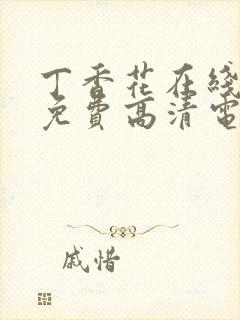 丁香花在线
免費高清電
戚惜